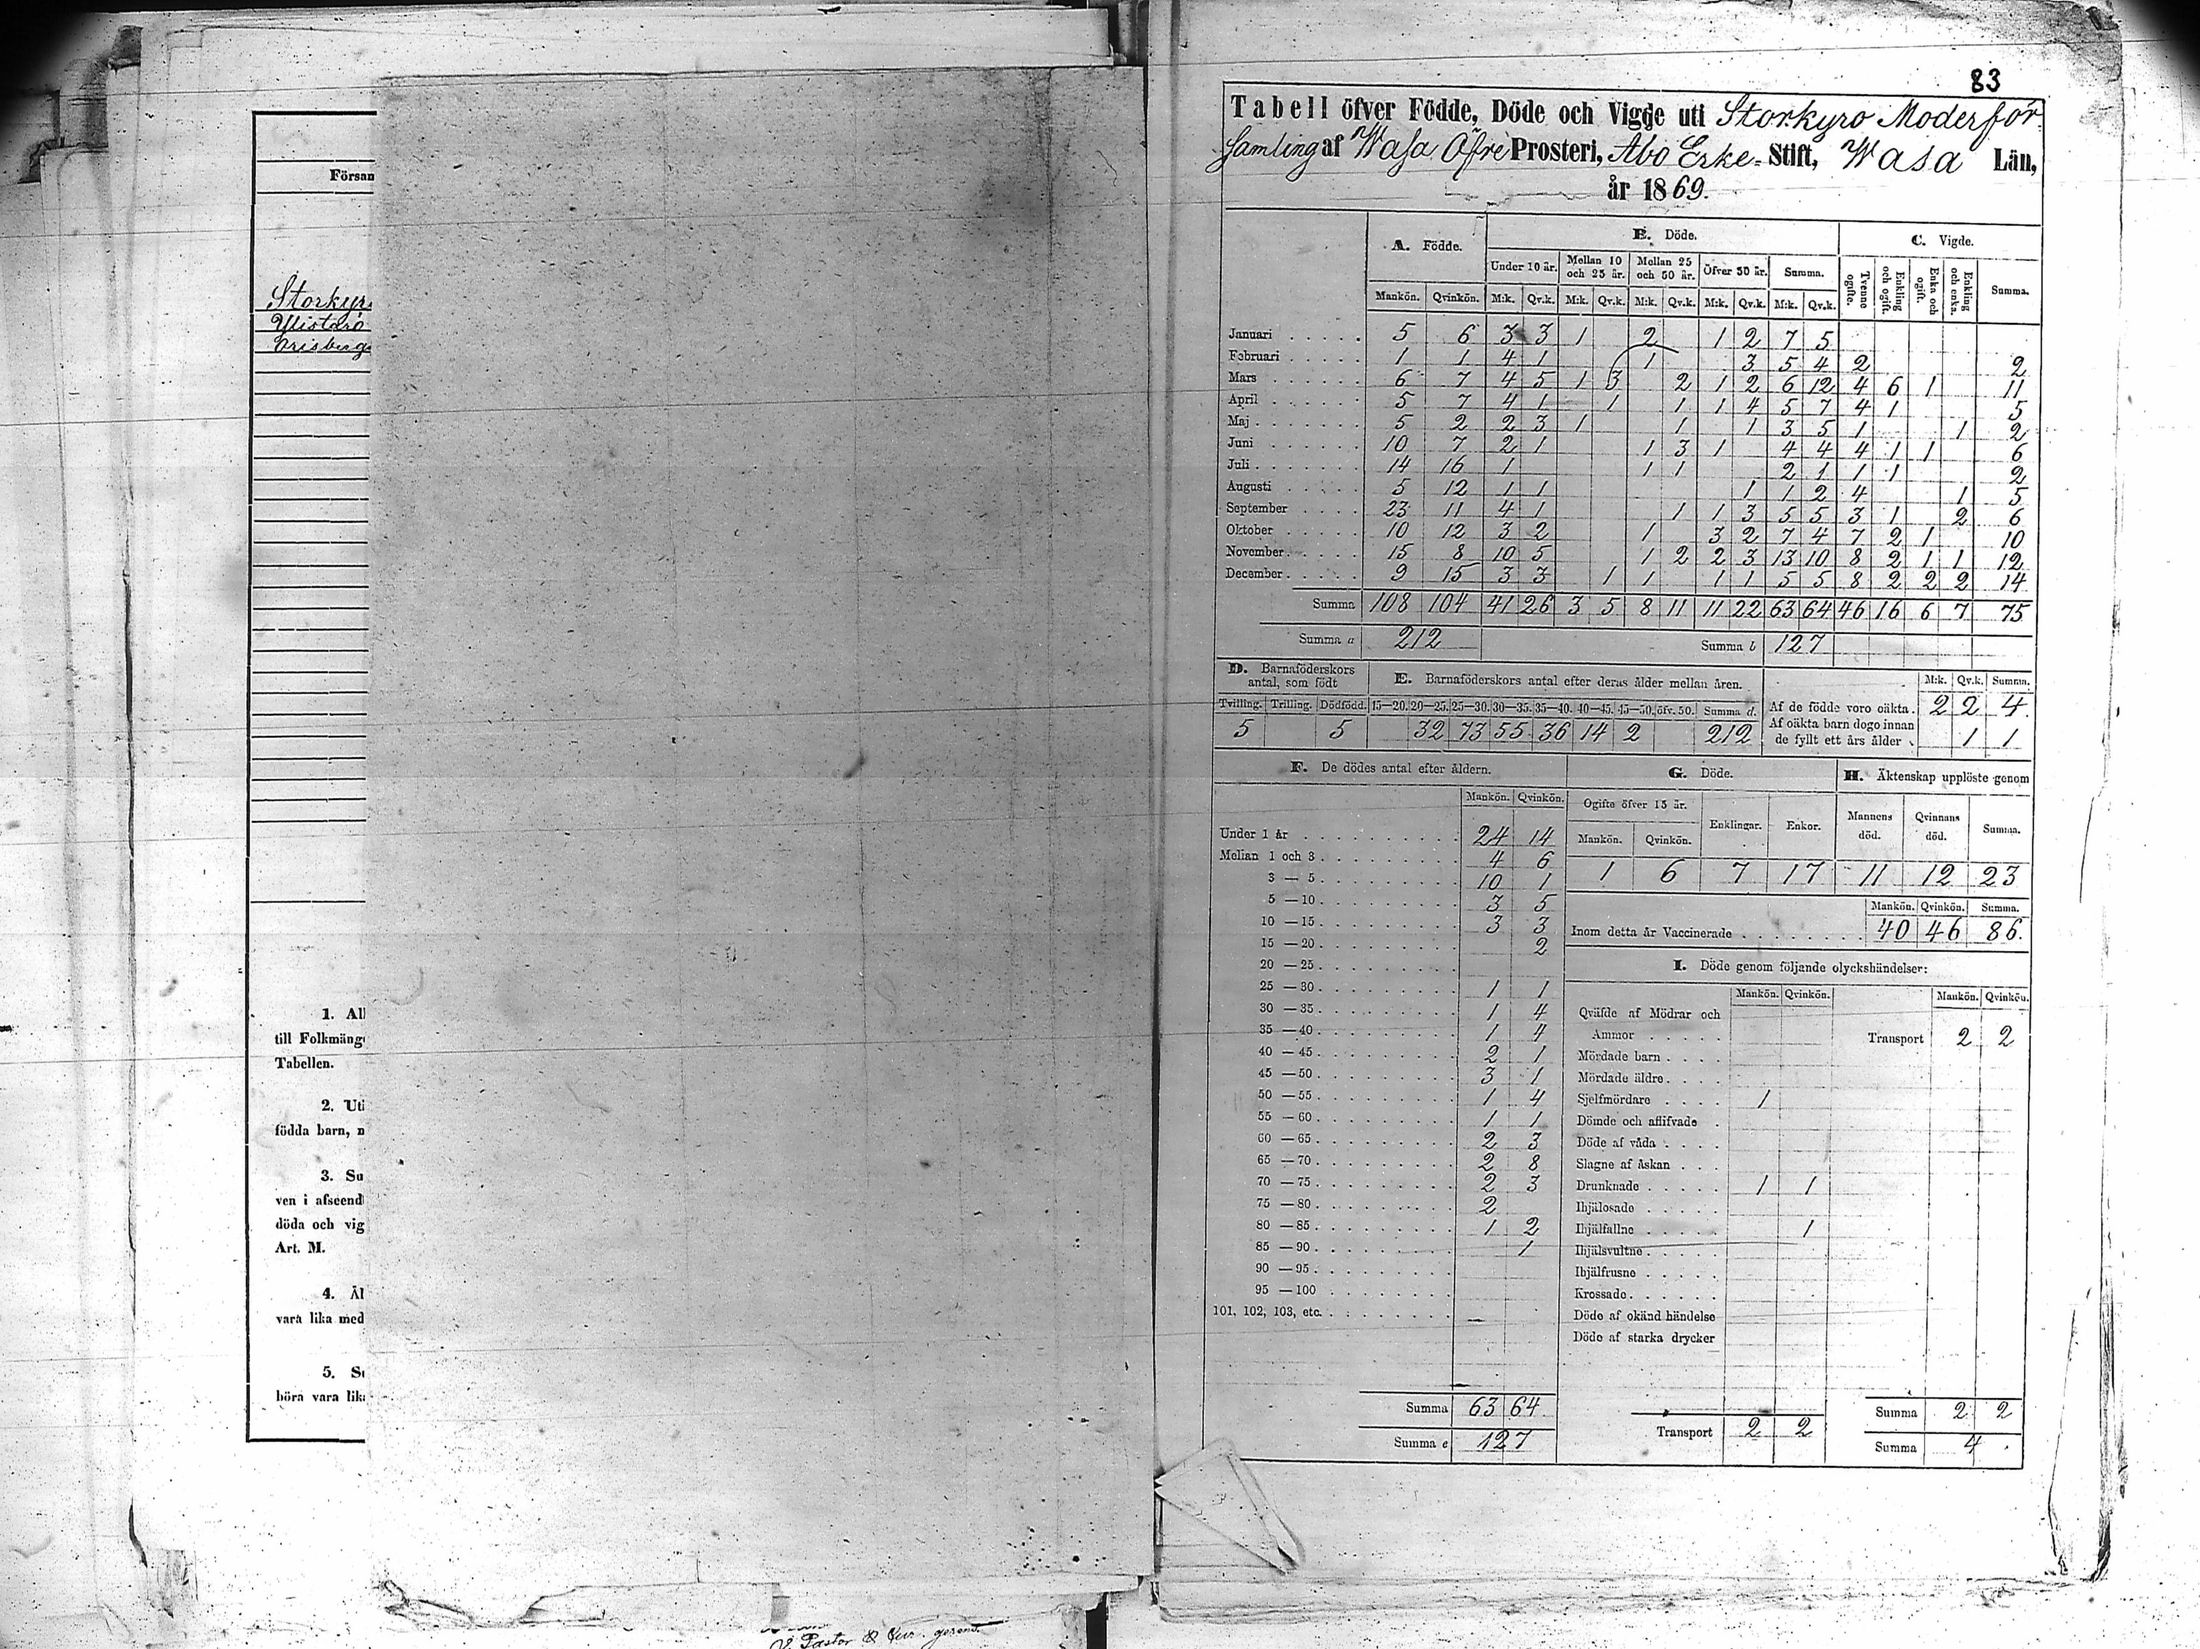 Försam
Storkyro
Ylistaro
Orisberg
1. All
till Folkmäng
Tabellen.
2. Uti
födda barn, n
3. Su
ven i afseend
döda och vig
Art. M.
4. Äl
vara lika med
5. S
böra vara lik
V. Pastor
83
Tabell öfver Födde, Döde och Vigde uti Storkyro Moderför
samling af Wasa Öfre Prosteri, Åbo Erke- Stift, Wasa Län,
år 1869.
A. Födde. B. Döde. C. Vigde.
Under 10 år. Mellan 10 och 25 år. Mellan 25 och 50 år. Öfver 50 år. Summa. Tvenne ogifte. Enkling och ogift. Enka och ogift. Enkling och enka. Summa.
Mankön. Qvinkön. M:k. Qv.k. M:k. Qv.k. M:k. Qv.k. M:k. Qv.k. M:k. Qv.k.
Januari 5 6 3 3 1 2 1 2 7 5
Februari 1 1 4 1 1 3 5 4 2 2
Mars 6 7 4 5 1 3 2 1 2 6 12 4 6 1 11
April 5 7 4 1 1 1 1 4 5 7 4 1 5
Maj 5 2 2 3 1 1 1 3 5 1 1 2
Juni 10 7 2 1 1 3 1 4 4 4 1 1 6
Juli 14 16 1 1 1 2 1 1 1 2
Augusti 5 12 1 1 1 1 2 4 1 5
September 23 11 4 1 1 1 3 5 5 3 1 2 6
Oktober 10 12 3 2 1 3 2 7 4 7 2 1 10
November 15 8 10 5 1 2 2 3 13 10 8 2 1 1 12
December 9 15 3 3 1 1 1 1 5 5 8 2 2 2 14
Summa 108 104 41 26 3 5 8 11 11 22 63 64 46 16 6 7 75
Summa a 212 Summa b 127
D. Barnaföderskors antal, som födt
E. Barnaföderskors antal efter deras ålder mellan åren.
M:k. Qv.k. Summa.
Tvilling. Trilling. Dödfödd. 15—20. 20—25. 25—30. 30—35. 35—40. 40—45. 45—50. öfv. 50. Summa d.
5 5 32 73 55 36 14 2 212
Af de födde voro oäkta. 2 2 4
Af oäkta barn dogo innan
de fyllt ett års ålder 1 1
F. De dödes antal efter åldern.
Mankön. Qvinkön.
Under 1 år 24 14
Mellan 1 och 3 4 6
3 — 5 10 1
5 — 10 3 5
10 — 15 3 3
15 — 20 2
20 — 25
25 — 30 1 1
30 — 35 1 4
35 — 40 1 4
40 — 45 2 1
45 — 50 3 1
50 — 55 1 4
55 — 60 1 1
60 — 65 2 3
65 — 70 2 8
70 — 75 2 3
75 — 80 2
80 — 85 1 2
85 — 90 1
90 — 95
95 — 100
101, 102, 103, etc.
Summa 63 64
Summa e 127
G. Döde. H. Äktenskap upplöste genom
Ogifte öfver 15 år. Enklingar. Enkor. Mannens död. Qvinnans död. Summa.
Mankön. Qvinkön.
1 6 7 17 11 12 23
Mankön. Qvinkön. Summa.
Inom detta år Vaccinerade 40 46 86.
I. Döde genom följande olyckshändelser:
Mankön. Qvinkön. Mankön. Qvinkön.
Qväfde af Mödrar och
Ammor Transport 2 2
Mördade barn
Mördade äldre
Sjelfmördare 1
Dömde och aflifvade
Döde af våda
Slagne af åskan
Drunknade 1 1
Ihjälosade
Ihjälfallne 1
Ihjälsvultne
Ihjälfrusne
Krossade
Döde af okänd händelse
Döde af starka drycker
Transport 2 2
Summa 2 2
Summa 4